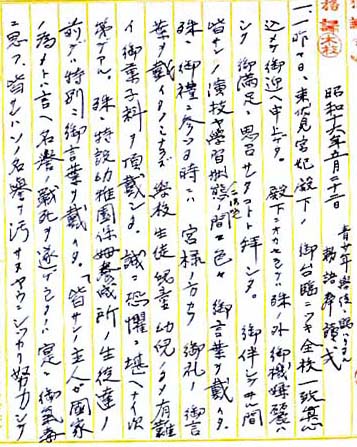 勅語奉読式
昭和十六年五月二十二
一、一昨日、東伏見宮妃殿下ノ御台臨ニツキ全校一致真心
込メテ御迎ヘ申上ゲタ。殿下ニオカセラレテハ殊ノ外御機嫌麗ハ
シク御満足ニ思召サレタコトト拝シタ。御伴シテヰル間
皆サンノ演技ヤ学習状態ノ間ニモ色々御言葉ヲ戴イタ。
殊ニ御禮ニ参ツタ時ニハ宮様ノ方カラ御礼ノ御言
葉ヲ戴イタノミナラズ學校生徒児童幼児ヘマデ有難
イ御菓子料ヲ頂戴シタ。誠ニ恐懼ニ堪ヘナイ次
第デアル。殊ニ特設幼稚園保姆養成所ノ生徒達ノ
前デハ特別ニ御言葉ヲ戴イタ。「皆サンノ主人ガ國家
ノ為メトハ言ヘ名誉ノ戦死ヲ遂ゲラレタノハ実ニ御気毒
ニ思フ、皆サンハソノ名誉ヲ汚サヌヤウニシッカリ努力シテ